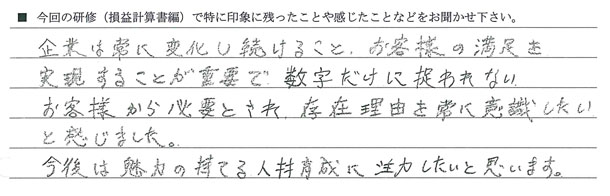 ■ 今回の研修（損益計算書編）で特に印象に残ったことや感じたことなどをお聞かせ下さい。
企業は常に変化し続けること、お客様の満足を
実現することが重要で、数字だけに捉われない
お客様から必要とされ、存在理由を常に意識したい
と感じました。
今後は魅力の持てる人材育成に注力したいと思います。